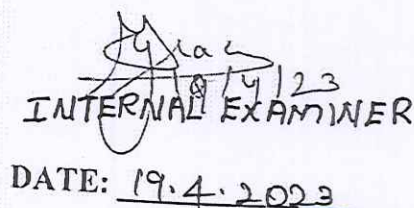 19/4/23
INTERNAL EXAMINER
DATE: 19.4.2023